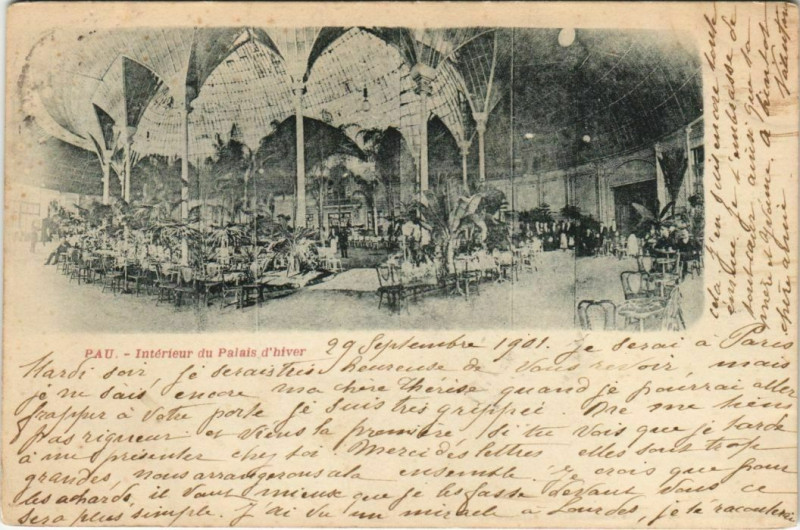 PAU. - Intérieur du Palais d'hiver
29 Septembre 1901. Je serai à Paris
Mardi soir, je serais très heureuse de vous revoir, mais
je ne sais encore ma chère Thérèse quand je pourrai aller
frapper à votre porte je suis très grippée. Ne me tiens
pas rigueur et viens la première, si tu vois que je tarde
à me présenter chez toi. Merci des lettres elles sont trop
grandes, nous arrangerons cela ensemble. Je crois que pour
les achards, il vaut mieux que je les fasse devant vous ce
sera plus simple. J'ai vu un miracle à Lourdes, je te raconterai
cela j'en suis encore toute
émue. Je t'embrasse de
tout cœur ainsi que ta
mère et
à bientôt